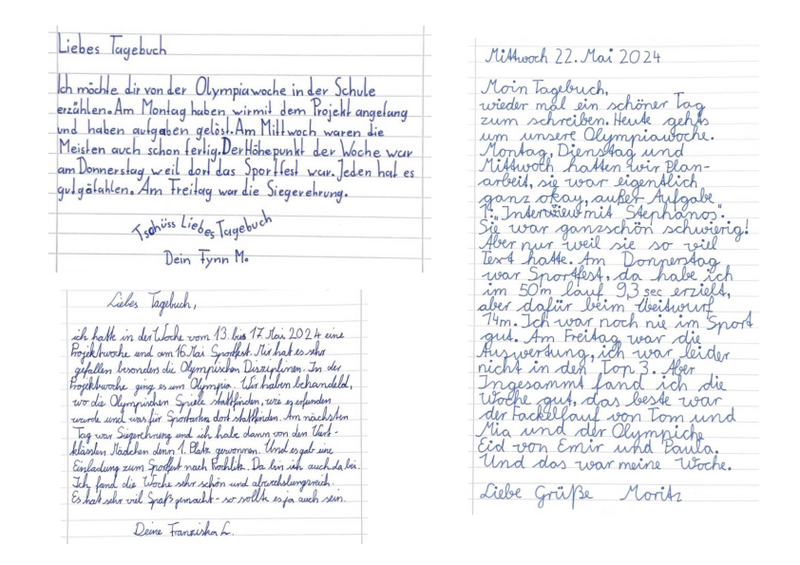 Liebes Tagebuch
Ich möchte dir von der Olympiawoche in der Schule
erzählen. Am Montag haben wir mit dem Projekt angefang
und haben aufgaben gelöst. Am Mittwoch waren die
Meisten auch schon fertig. Der Höhepunkt der Woche war
am Donnerstag weil dort das Sportfest war. Jeden hat es
gutgefahlen. Am Freitag war die Siegerehrung.
Tschüss Liebes Tagebuch
Dein Fynn M.
Liebes Tagebuch,
ich hatte in der Woche vom 13. bis 17. Mai 2024 eine
Projektwoche und am 16 Mai Sportfest. Mir hat es sehr
gefallen besonders die Olympischen Disziplinen. In der
Projektwoche ging es um Olympia. Wir haben behandeld,
wo die Olympischen Spiele stattfinden, wie es erfunden
wurde und was für Sportarten dort stattfinden. Am nächsten
Tag war Siegerehrung und ich habe dann von den Viert-
klässlern Mädchen denn 1. Platz gewonnen. Und es gab eine
Einladung zum Sportfest nach Rochlitz. Da bin ich auch dabei.
Ich fand die Woche sehr schön und abwechslungsreich.
Es hat sehr viel Spaß gemacht - so sollte es ja auch sein.
Deine Franziska L.
Mittwoch 22. Mai 2024
Moin Tagebuch,
wieder mal ein schöner Tag
zum schreiben. Heute geht's
um unsere Olympiawoche.
Montag, Dienstag und
Mittwoch hatten wir Plan-
arbeit, sie war eigentlich
ganz okay, außer Aufgabe
1: "Interwiew mit Stephanos".
Sie war ganzschön schwierig!
Aber nur weil sie so viel
Text hatte. Am Donnerstag
war Sportfest, da habe ich
im 50m lauf 9,3 sec erzielt,
aber dafür beim Weitwurf
14m. Ich war noch nie im Sport
gut. Am Freitag war die
Auswertung, ich war leider
nicht in den Top 3. Aber
Ingesammt fand ich die
Woche gut, das beste war
der Fackellauf von Tom und
Mia und der Olympiche
Eid von Emir und Paula.
Und das war meine Woche.
Liebe Grüße Moritz